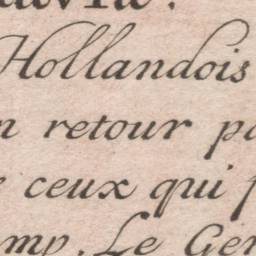 Hollandois
n retour pa
ceux qui
mp. Le Gen